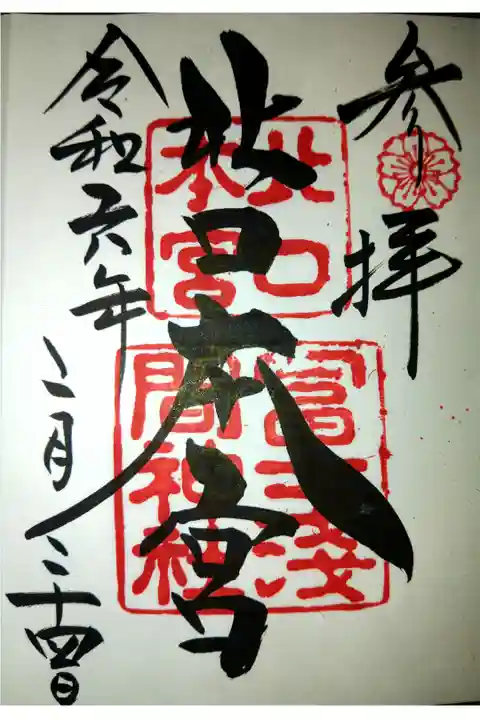 参拝
北口本宮
令和六年
二月二十四日
北口
本宮
冨士淺
間神社